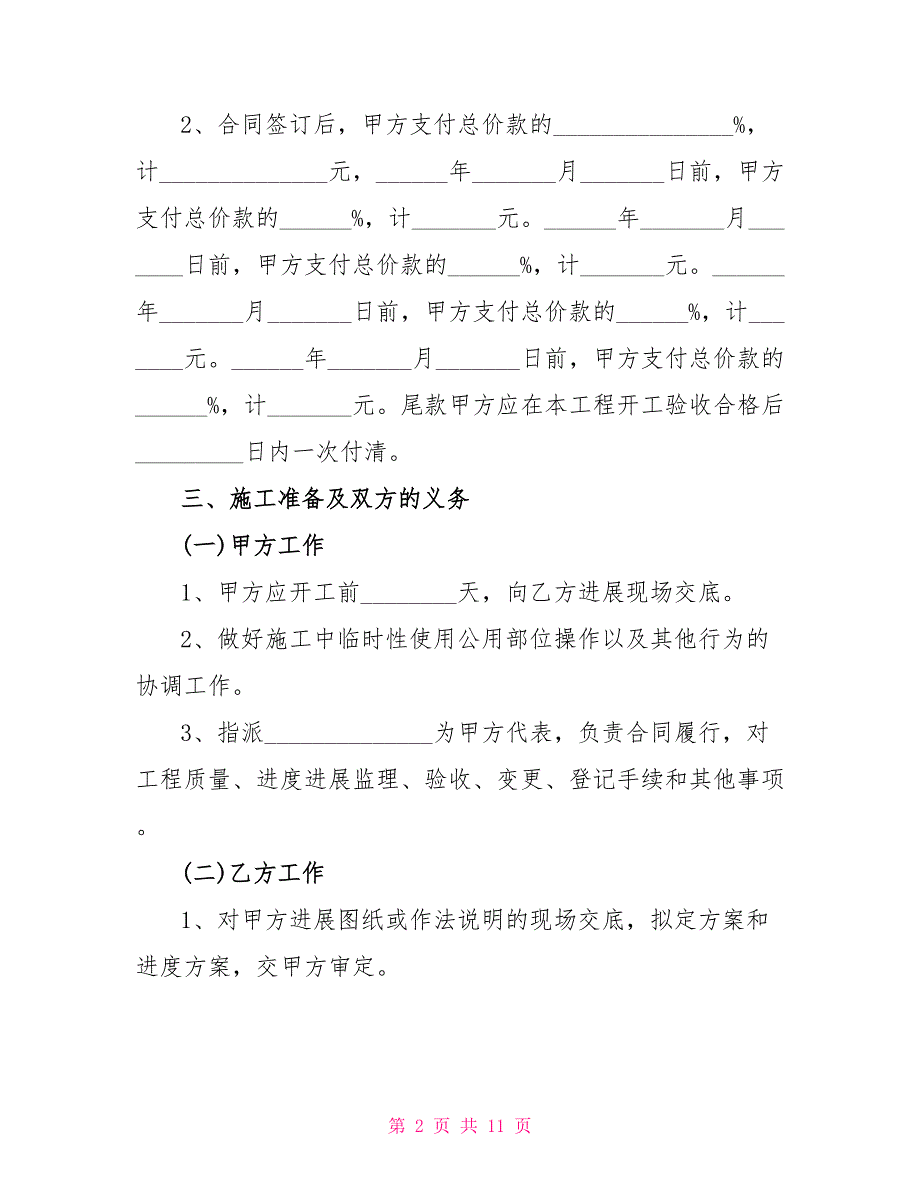 2、合同签订后，甲方支付总价款的_______________%，
计______________元，______年_______月_______日前，甲方
支付总价款的______%，计_______元。______年_______月___
____日前，甲方支付总价款的______%，计_______元。______
年_______月_______日前，甲方支付总价款的______%，计___
____元。______年_______月_______日前，甲方支付总价款的
______%，计_______元。尾款甲方应在本工程开工验收合格后
_________日内一次付清。
三、施工准备及双方的义务
(一)甲方工作
1、甲方应开工前________天，向乙方进展现场交底。
2、做好施工中临时性使用公用部位操作以及其他行为的
协调工作。
3、指派______________为甲方代表，负责合同履行，对
工程质量、进度进展监理、验收、变更、登记手续和其他事项
。
(二)乙方工作
1、对甲方进展图纸或作法说明的现场交底，拟定方案和
进度方案，交甲方审定。
第 2 页 共 11 页